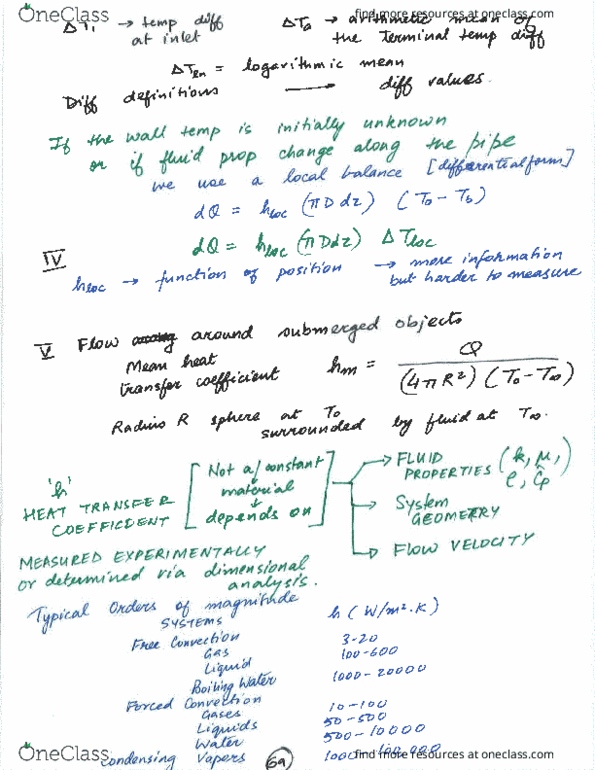 OneClass
find more resources at oneclass.com
ΔT₁ → temp diff at inlet
ΔTa → arithmetic mean of the terminal temp diff
ΔTln = logarithmic mean
Diff definitions → diff values.
If the wall temp is initially unknown
or if fluid prop change along the pipe
we use a local balance [differential form]
dQ = hloc (πD dz) (To − Tb)
dQ = hloc (πDdz) ΔTloc
IV
hloc → function of position → more information
but harder to measure
V Flow around submerged objects
Mean heat
transfer coefficient hm = Q / (4πR²) (To − T∞)
Radius R sphere at To
surrounded by fluid at T∞.
'h'
HEAT TRANSFER
COEFFICIENT
[Not a/constant
material
↓
depends on]
→ FLUID
PROPERTIES (k, μ,
ρ, Ĉp)
→ System
GEOMETRY
→ FLOW VELOCITY
MEASURED EXPERIMENTALLY
or determined via dimensional
analysis.
Typical Orders of magnitude
SYSTEMS h (W/m².K)
Free Convection
Gas 3-20
Liquid 100-600
Boiling Water 1000-20000
Forced Convection
Gases 10-100
Liquids 50-500
Water 500-10000
Condensing Vapors 1000-100,000
69
OneClass
find more resources at oneclass.com